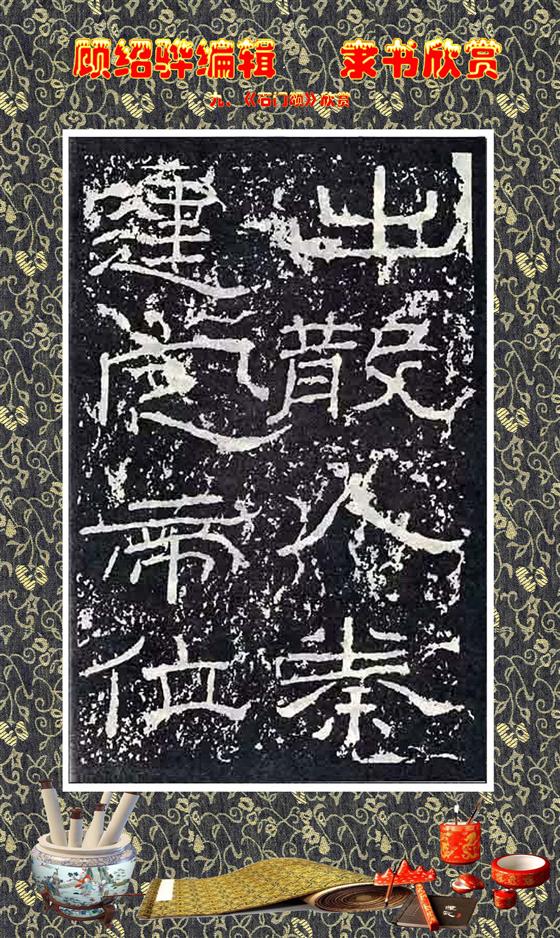 顾绍骅编辑 隶书欣赏
九、《石门颂》欣赏
出散入秦
建定帝位